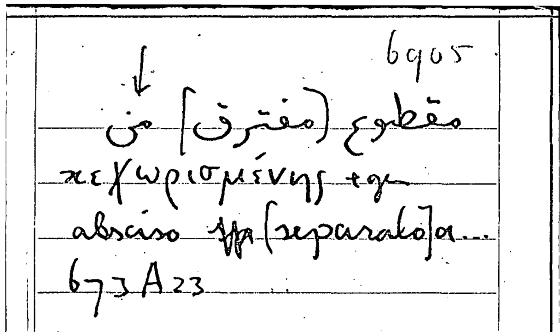 6905
مقطوع (مفترق] من
κεχωρισμένης +gen
absciso [separato] a...
673 A 23